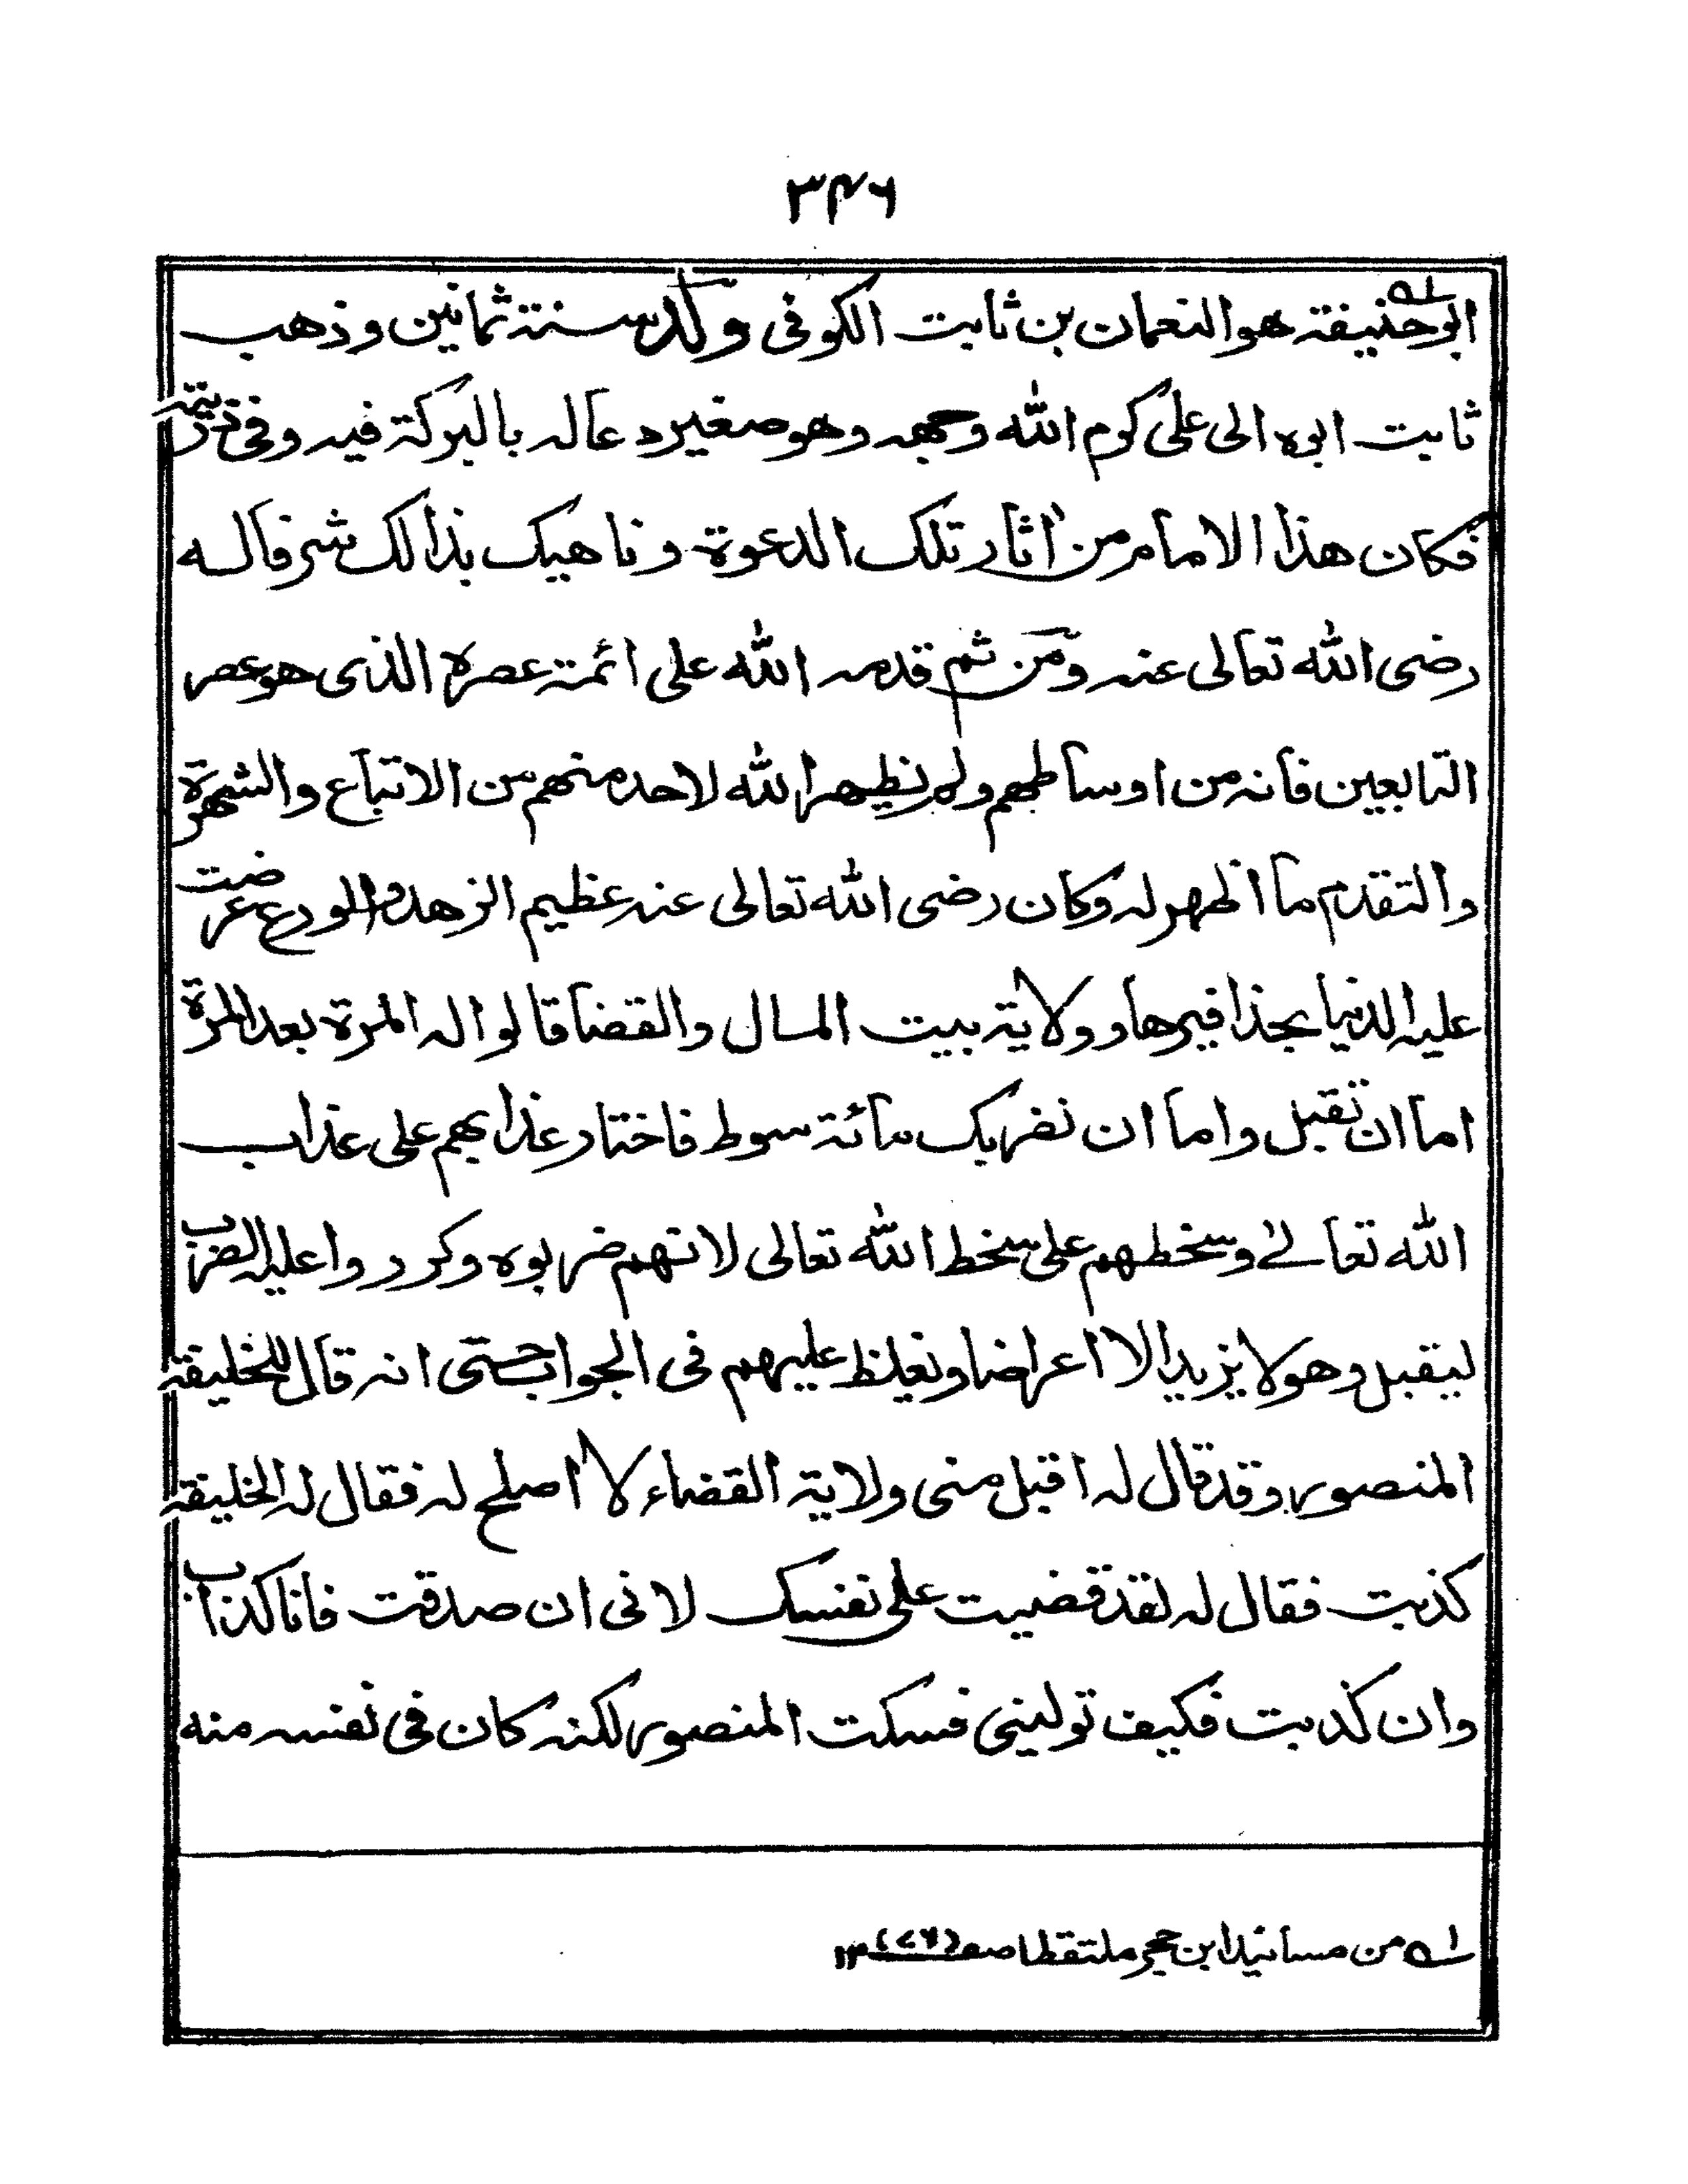 ۳۴۶
ابوحنیفة ھو النعمان بن ثابت الکوفی ولد سنة ثمانین و ذھب
ثابت ابوہ الی علی کرم اللہ وجھہ وھو صغیر دعا لہ بالبرکة فیہ وفی ذریتہ
فکان ھذا الامام من اثار تلک الدعوة و ناھیک بذالک شرفا لہ
رضی اللہ تعالی عنہ ومن ثم قدمہ اللہ علی ائمة عصرہ الذی ھو عصر
التابعین فانہ من اوساطھم ولم یظھر اللہ لاحد منھم من الاتباع والشھرة
والتقدم ما اظھر لہ وکان رضی اللہ تعالی عنہ عظیم الزھد والورع عرضت
علیہ الدنیا بحذافیرھا و ولایة بیت المال والقضا قالوا لہ المرة بعد المرة
اما ان تقبل واما ان نضربک مائة سوط فاختار عذابھم علی عذاب
اللہ تعالے وسخطھم علی سخط اللہ تعالی لانھم ضربوہ وکرروا علیہ الضرب
لیقبل وھو لا یزید الا اعراضا ویغلظ علیھم فی الجواب حتی انہ قال للخلیفة
المنصور وقد قال لہ اقبل منی ولایة القضاء لا اصلح لہ فقال لہ الخلیفة
کذبت فقال لہ لقد قضیت علی نفسک لانی ان صدقت فانا کذاب
وان کذبت فکیف تولینی فسکت المنصور لکنہ کان فی نفسہ منہ
لہ من مسانید ابن حجر ملتقطا صہ (۷۶) ۱۲